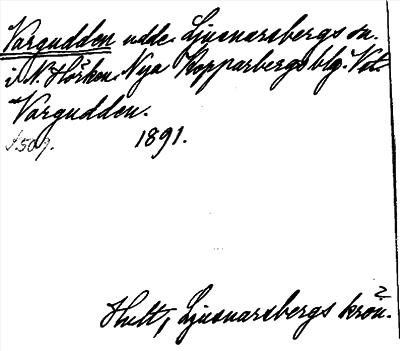 Vargudden udde. Ljusnarsbergs sn.
i N. Hörken. Nya Kopparbergs blg. Vol.
Vargudden.
s. 507. 1891.
Hult, Ljusnarsbergs krön.